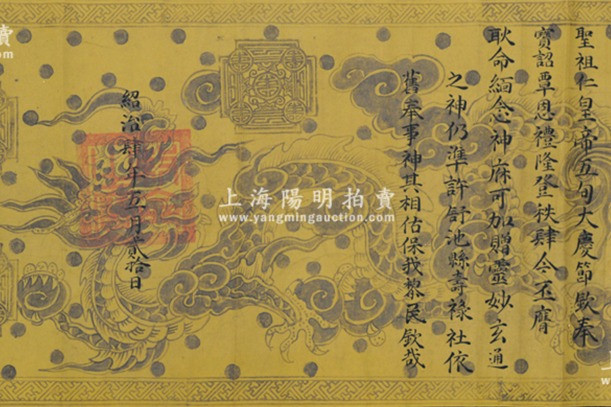 聖祖仁皇帝五旬大慶節欽奉
寶詔覃恩禮隆登秩肆今丕膺
耿命緬念神庥可加贈靈妙玄通
之神仍準許舒池縣壽祿社依
舊奉事神其相佑保我黎民欽哉
紹治肆年五月貳拾日
上海陽明拍賣
www.yangmingauction.com